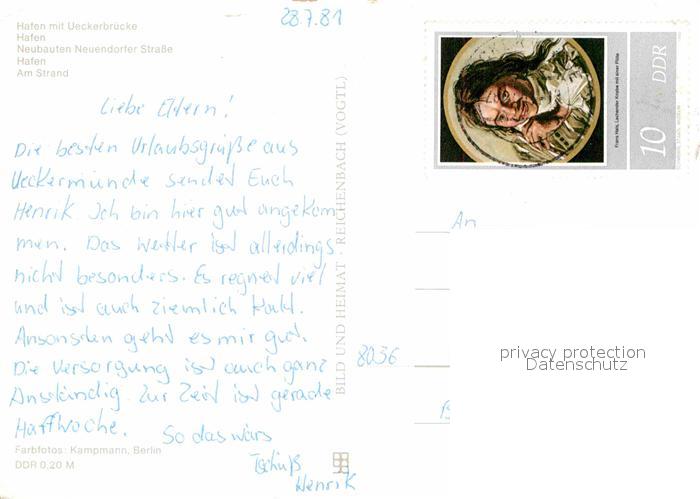 Hafen mit Ueckerbrücke
Hafen
Neubauten Neuendorfer Straße
Hafen
Am Strand
28.7.81
Liebe Eltern!
Die besten Urlaubsgrüße aus
Ueckermünde sendet Euch
Henrik. Ich bin hier gut angekom
men. Das Wetter ist allerdings
nicht besonders. Es regnet viel
und ist auch ziemlich kalt.
Ansonsten geht es mir gut.
Die Versorgung ist auch ganz
Anständig. Zur Zeit ist gerade
Haffwoche.
So das wärs
Tschüß
Henrik
Farbfotos: Kampmann, Berlin
DDR 0,20 M
BILD UND HEIMAT · REICHENBACH (VOGTL)
Frans Hals, Lachender Knabe mit einer Flöte
10 DDR
An
8036
privacy protection
Datenschutz